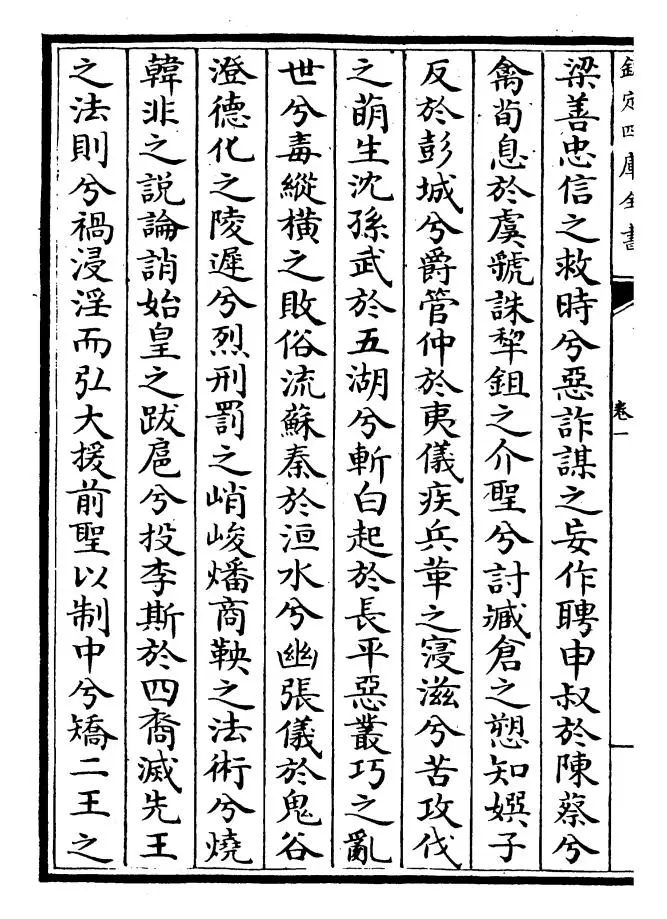 欽定四庫全書
卷一
梁善忠信之救時兮惡詐謀之妄作聘申叔於陳蔡兮
禽荀息於虞虢誅犁鉏之介聖兮討臧倉之愬知娯子
反於彭城兮爵管仲於夷儀疾兵革之寖滋兮苦攻伐
之萌生沈孫武於五湖兮斬白起於長平惡叢巧之亂
世兮毒縱橫之敗俗流蘇秦於洹水兮幽張儀於鬼谷
澄德化之陵遲兮烈刑罰之峭峻燔商鞅之法術兮燒
韓非之説論誚始皇之跋扈兮投李斯於四裔滅先王
之法則兮禍浸淫而弘大援前聖以制中兮矯二王之